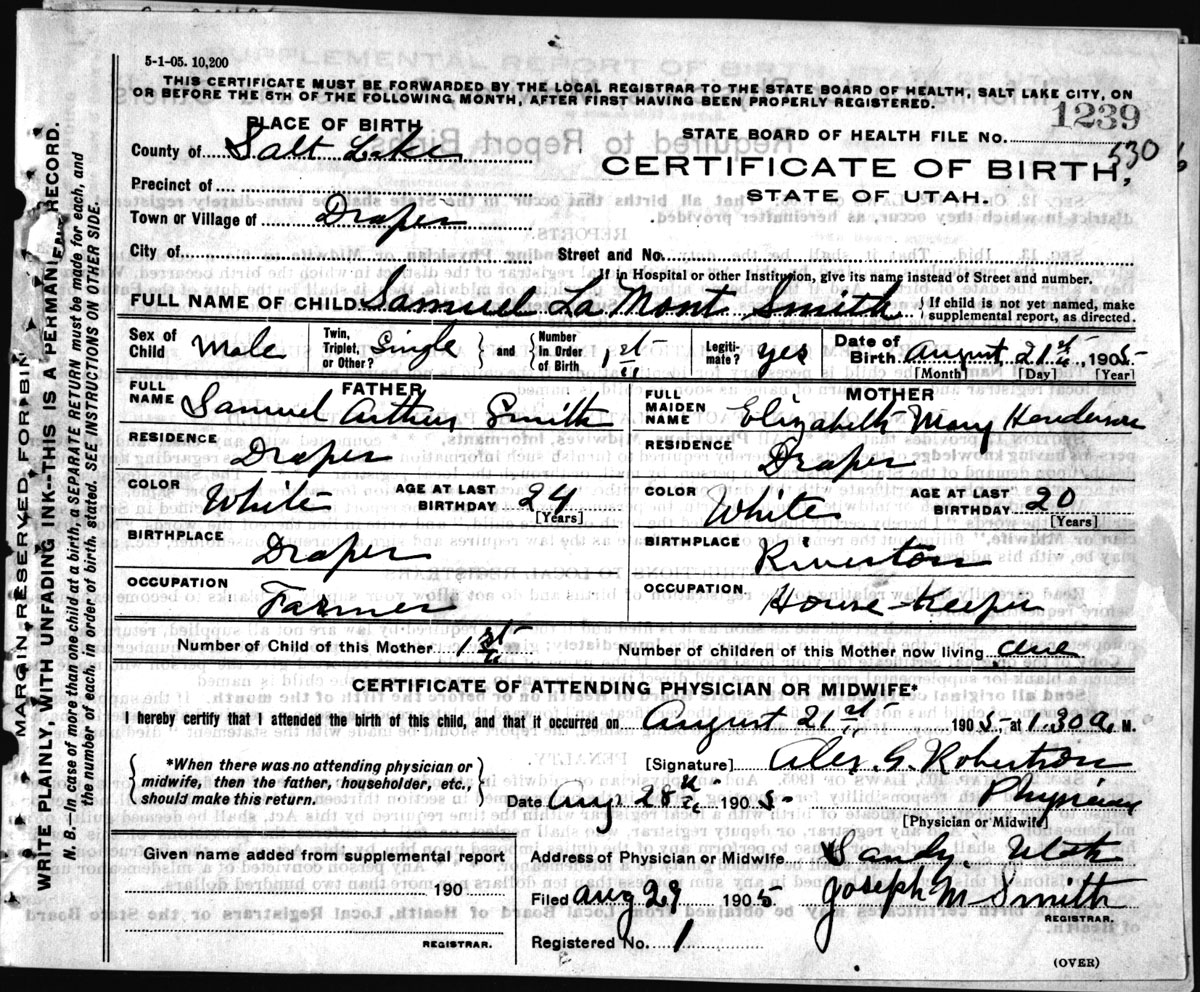 5-1-05. 10,200
THIS CERTIFICATE MUST BE FORWARDED BY THE LOCAL REGISTRAR TO THE STATE BOARD OF HEALTH, SALT LAKE CITY, ON
OR BEFORE THE 5TH OF THE FOLLOWING MONTH, AFTER FIRST HAVING BEEN PROPERLY REGISTERED.
1239
PLACE OF BIRTH
STATE BOARD OF HEALTH FILE No.
530
County of Salt Lake
CERTIFICATE OF BIRTH,
Precinct of
STATE OF UTAH.
Town or Village of Draper
City of
Street and No.
If in Hospital or other Institution, give its name instead of Street and number.
FULL NAME OF CHILD Samuel La Mont Smith
{ If child is not yet named, make
supplemental report, as directed.
Sex of Child Male
Twin, Triplet, or Other? Single } and { Number In Order of Birth 1st
Legitimate? yes
Date of Birth August 21st 1905
[Month] [Day] [Year]
FATHER
FULL NAME Samuel Arthur Smith
RESIDENCE Draper
COLOR White AGE AT LAST BIRTHDAY 24
[Years]
BIRTHPLACE Draper
OCCUPATION Farmer
MOTHER
FULL MAIDEN NAME Elizabeth Mary Henderson
RESIDENCE Draper
COLOR White AGE AT LAST BIRTHDAY 20
[Years]
BIRTHPLACE Riverton
OCCUPATION House-keeper
Number of Child of this Mother 1st
Number of children of this Mother now living one
CERTIFICATE OF ATTENDING PHYSICIAN OR MIDWIFE*
I hereby certify that I attended the birth of this child, and that it occurred on August 21st 1905 at 1.30 a M.
{ *When there was no attending physician or
midwife, then the father, householder, etc.,
should make this return. }
[Signature] Alex. G. Robertson
Date Aug 28th 1905 Physician
[Physician or Midwife]
Given name added from supplemental report
190
REGISTRAR.
Address of Physician or Midwife Sandy, Utah
Filed Aug 29 1905 Joseph M Smith
REGISTRAR.
Registered No. 1
(OVER)
MARGIN RESERVED FOR BIN
WRITE PLAINLY, WITH UNFADING INK--THIS IS A PERMAN RECORD.
N. B.--In case of more than one child at a birth, a SEPARATE RETURN must be made for each, and
the number of each, in order of birth, stated. SEE INSTRUCTIONS ON OTHER SIDE.